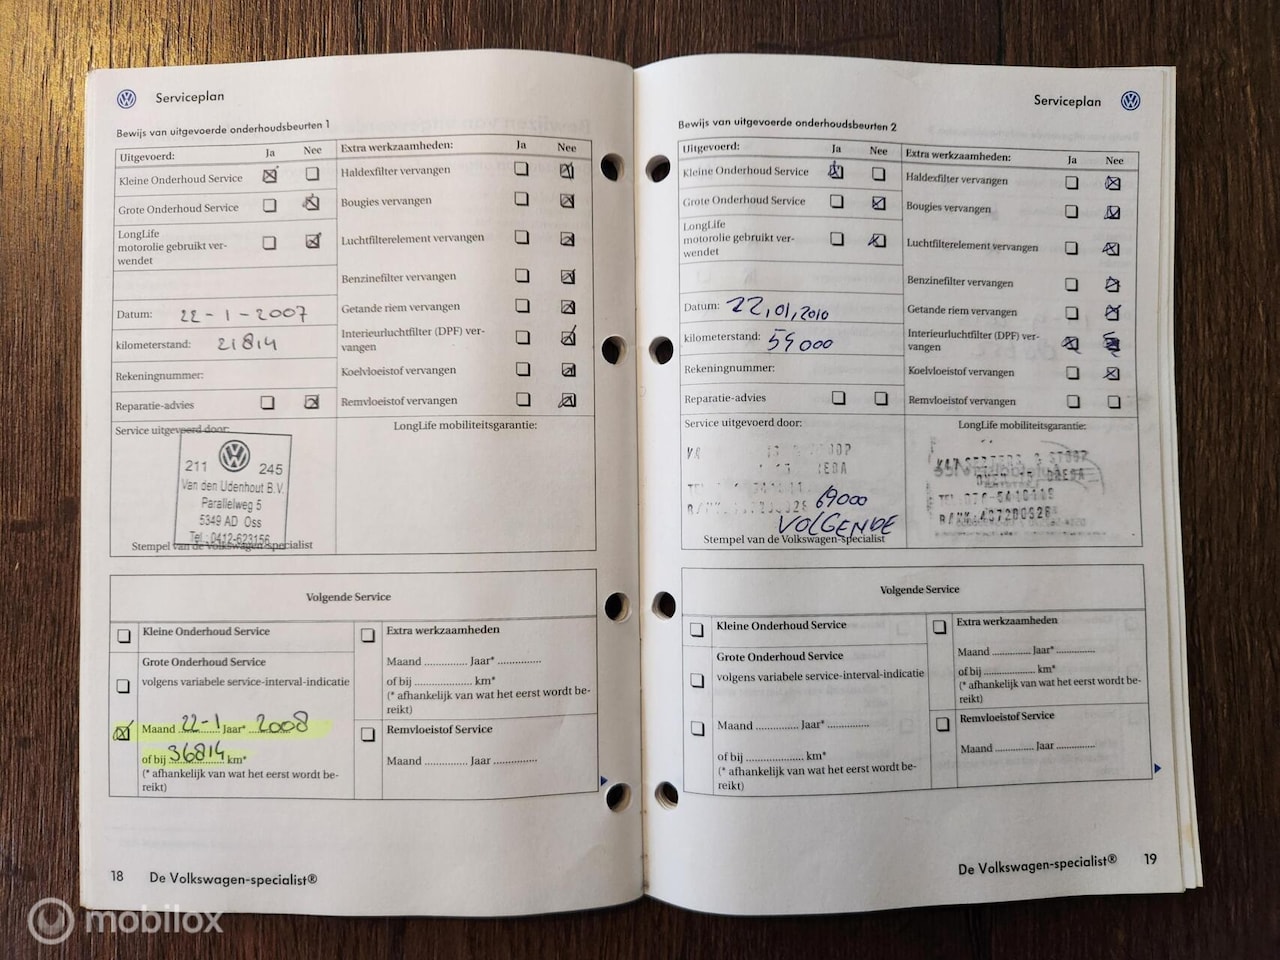 Serviceplan
Bewijs van uitgevoerde onderhoudsbeurten 1
Uitgevoerd: Ja Nee
Kleine Onderhoud Service
Grote Onderhoud Service
LongLife
motorolie gebruikt ver-
wendet
Datum: 22-1-2007
kilometerstand: 21814
Rekeningnummer:
Reparatie-advies
Extra werkzaamheden: Ja Nee
Haldexfilter vervangen
Bougies vervangen
Luchtfilterelement vervangen
Benzinefilter vervangen
Getande riem vervangen
Interieurluchtfilter (DPF) ver-
vangen
Koelvloeistof vervangen
Remvloeistof vervangen
Service uitgevoerd door:
211 245
Van den Udenhout B.V.
Parallelweg 5
5349 AD Oss
Tel.: 0412-623156
Stempel van de Volkswagen-specialist
LongLife mobiliteitsgarantie:
Volgende Service
Kleine Onderhoud Service
Grote Onderhoud Service
volgens variabele service-interval-indicatie
Maand 22-1 Jaar* 2008
of bij 36814 km*
(* afhankelijk van wat het eerst wordt be-
reikt)
Extra werkzaamheden
Maand ............... Jaar* ...............
of bij .................... km*
(* afhankelijk van wat het eerst wordt be-
reikt)
Remvloeistof Service
Maand ............... Jaar ...............
18 De Volkswagen-specialist®
Serviceplan
Bewijs van uitgevoerde onderhoudsbeurten 2
Uitgevoerd: Ja Nee
Kleine Onderhoud Service
Grote Onderhoud Service
LongLife
motorolie gebruikt ver-
wendet
Datum: 22,01,2010
kilometerstand: 59000
Rekeningnummer:
Reparatie-advies
Extra werkzaamheden: Ja Nee
Haldexfilter vervangen
Bougies vervangen
Luchtfilterelement vervangen
Benzinefilter vervangen
Getande riem vervangen
Interieurluchtfilter (DPF) ver-
vangen
Koelvloeistof vervangen
Remvloeistof vervangen
Service uitgevoerd door:
69000
VOLGENDE
Stempel van de Volkswagen-specialist
LongLife mobiliteitsgarantie:
Volgende Service
Kleine Onderhoud Service
Grote Onderhoud Service
volgens variabele service-interval-indicatie
Maand ............... Jaar* ...............
of bij .................... km*
(* afhankelijk van wat het eerst wordt be-
reikt)
Extra werkzaamheden
Maand ............... Jaar* ...............
of bij .................... km*
(* afhankelijk van wat het eerst wordt be-
reikt)
Remvloeistof Service
Maand ............... Jaar ...............
De Volkswagen-specialist® 19
mobilox